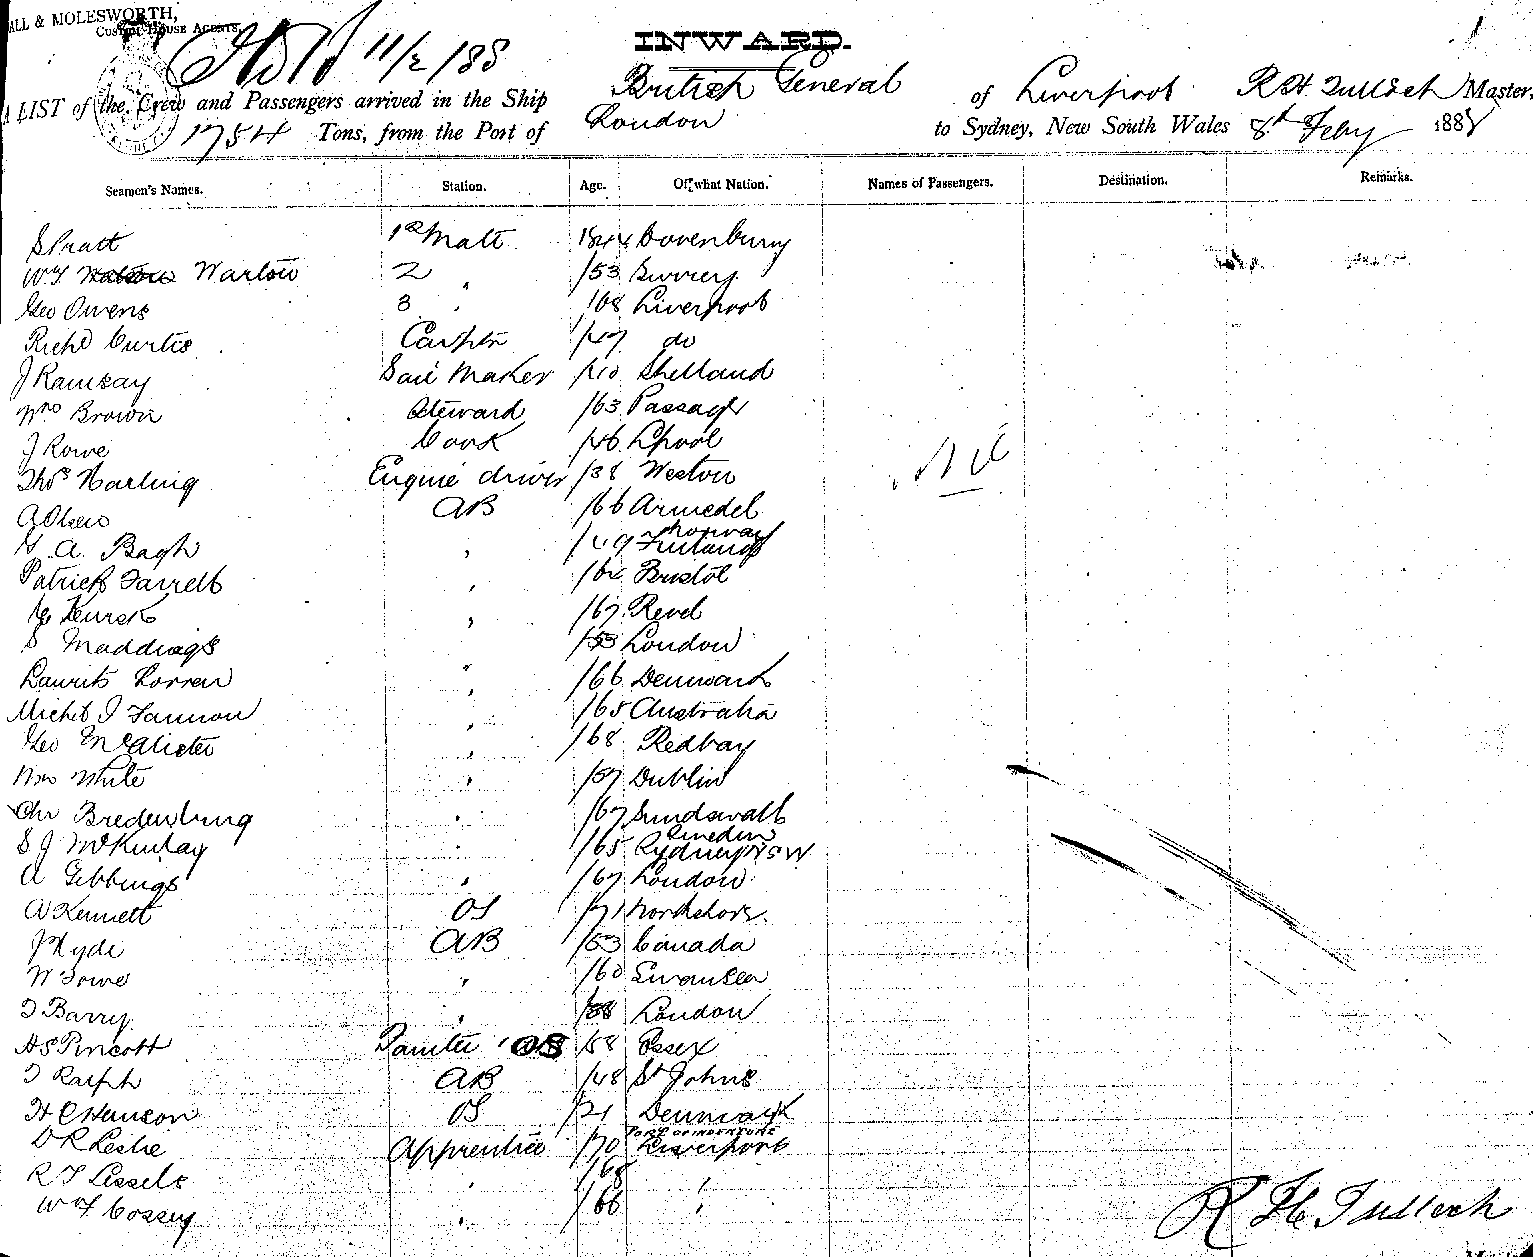 ALL & MOLESWORTH,
CUSTOM HOUSE AGENTS,
INWARD.
11/2/88
A LIST of the Crew and Passengers arrived in the Ship British General of Liverpool R H Tulloch Master,
1754 Tons, from the Port of London to Sydney, New South Wales 8th Feby 1888
Seamen's Names. Station. Age. Of what Nation. Names of Passengers. Destination. Remarks.
S Pratt 1st Mate
W. Y. Warlow 2 " /53 Surrey
Geo Owens 3 " Liverpool
Richd Curtis Carptr /47 do
J Ramsay Sail Maker /40 Shetland
Wm Brown Steward /63
J Rowe Cook /46 Lpool
Thos Harling Engine driver /38 Weston
A Olsen AB /66 Norway
G. A. Bagh " /49 Finland
Patrick Farrell " /64 Bristol
" /67 Revel
S Maddings " London
Laurits Lorren " /66 Denmark
Michl J Fannon " /65 Australia
Geo McAlister " /68 Redbay
Wm White " /57 Dublin
Chr Bredenburg " /67 Sundsvall Sweden
S J McKinlay " /65 Sydney NSW
A Gibbings " /67 London
A Kennett OS /71
J Hyde AB /53 Canada
W " /60 Swansea
T Barry " London
H S Pincott OS /58 Essex
T Ralph AB /48 St Johns
H C Hanson OS Denmark
PORT OF INDENTURE
D R Leslie Apprentice /70 Liverpool
R T Lessels " /68 "
W Y Cossey " /66 "
Nil
R H Tulloch